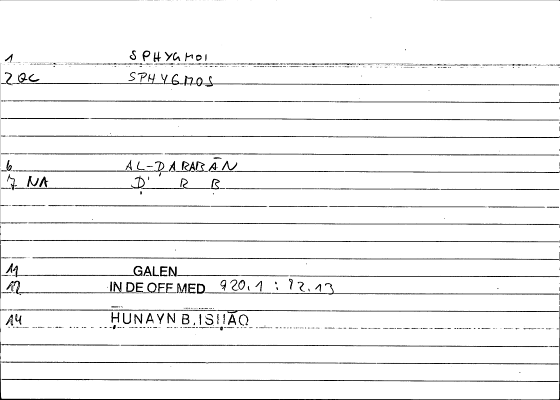 1 SPHYGMOI
2 QC SPHYGMOS
6 AL-ḌARABĀN
7 NA Ḍ R B
11 GALEN
12 IN DE OFF MED 920.1 : 12.13
14 ḤUNAYN B. ISḤĀQ